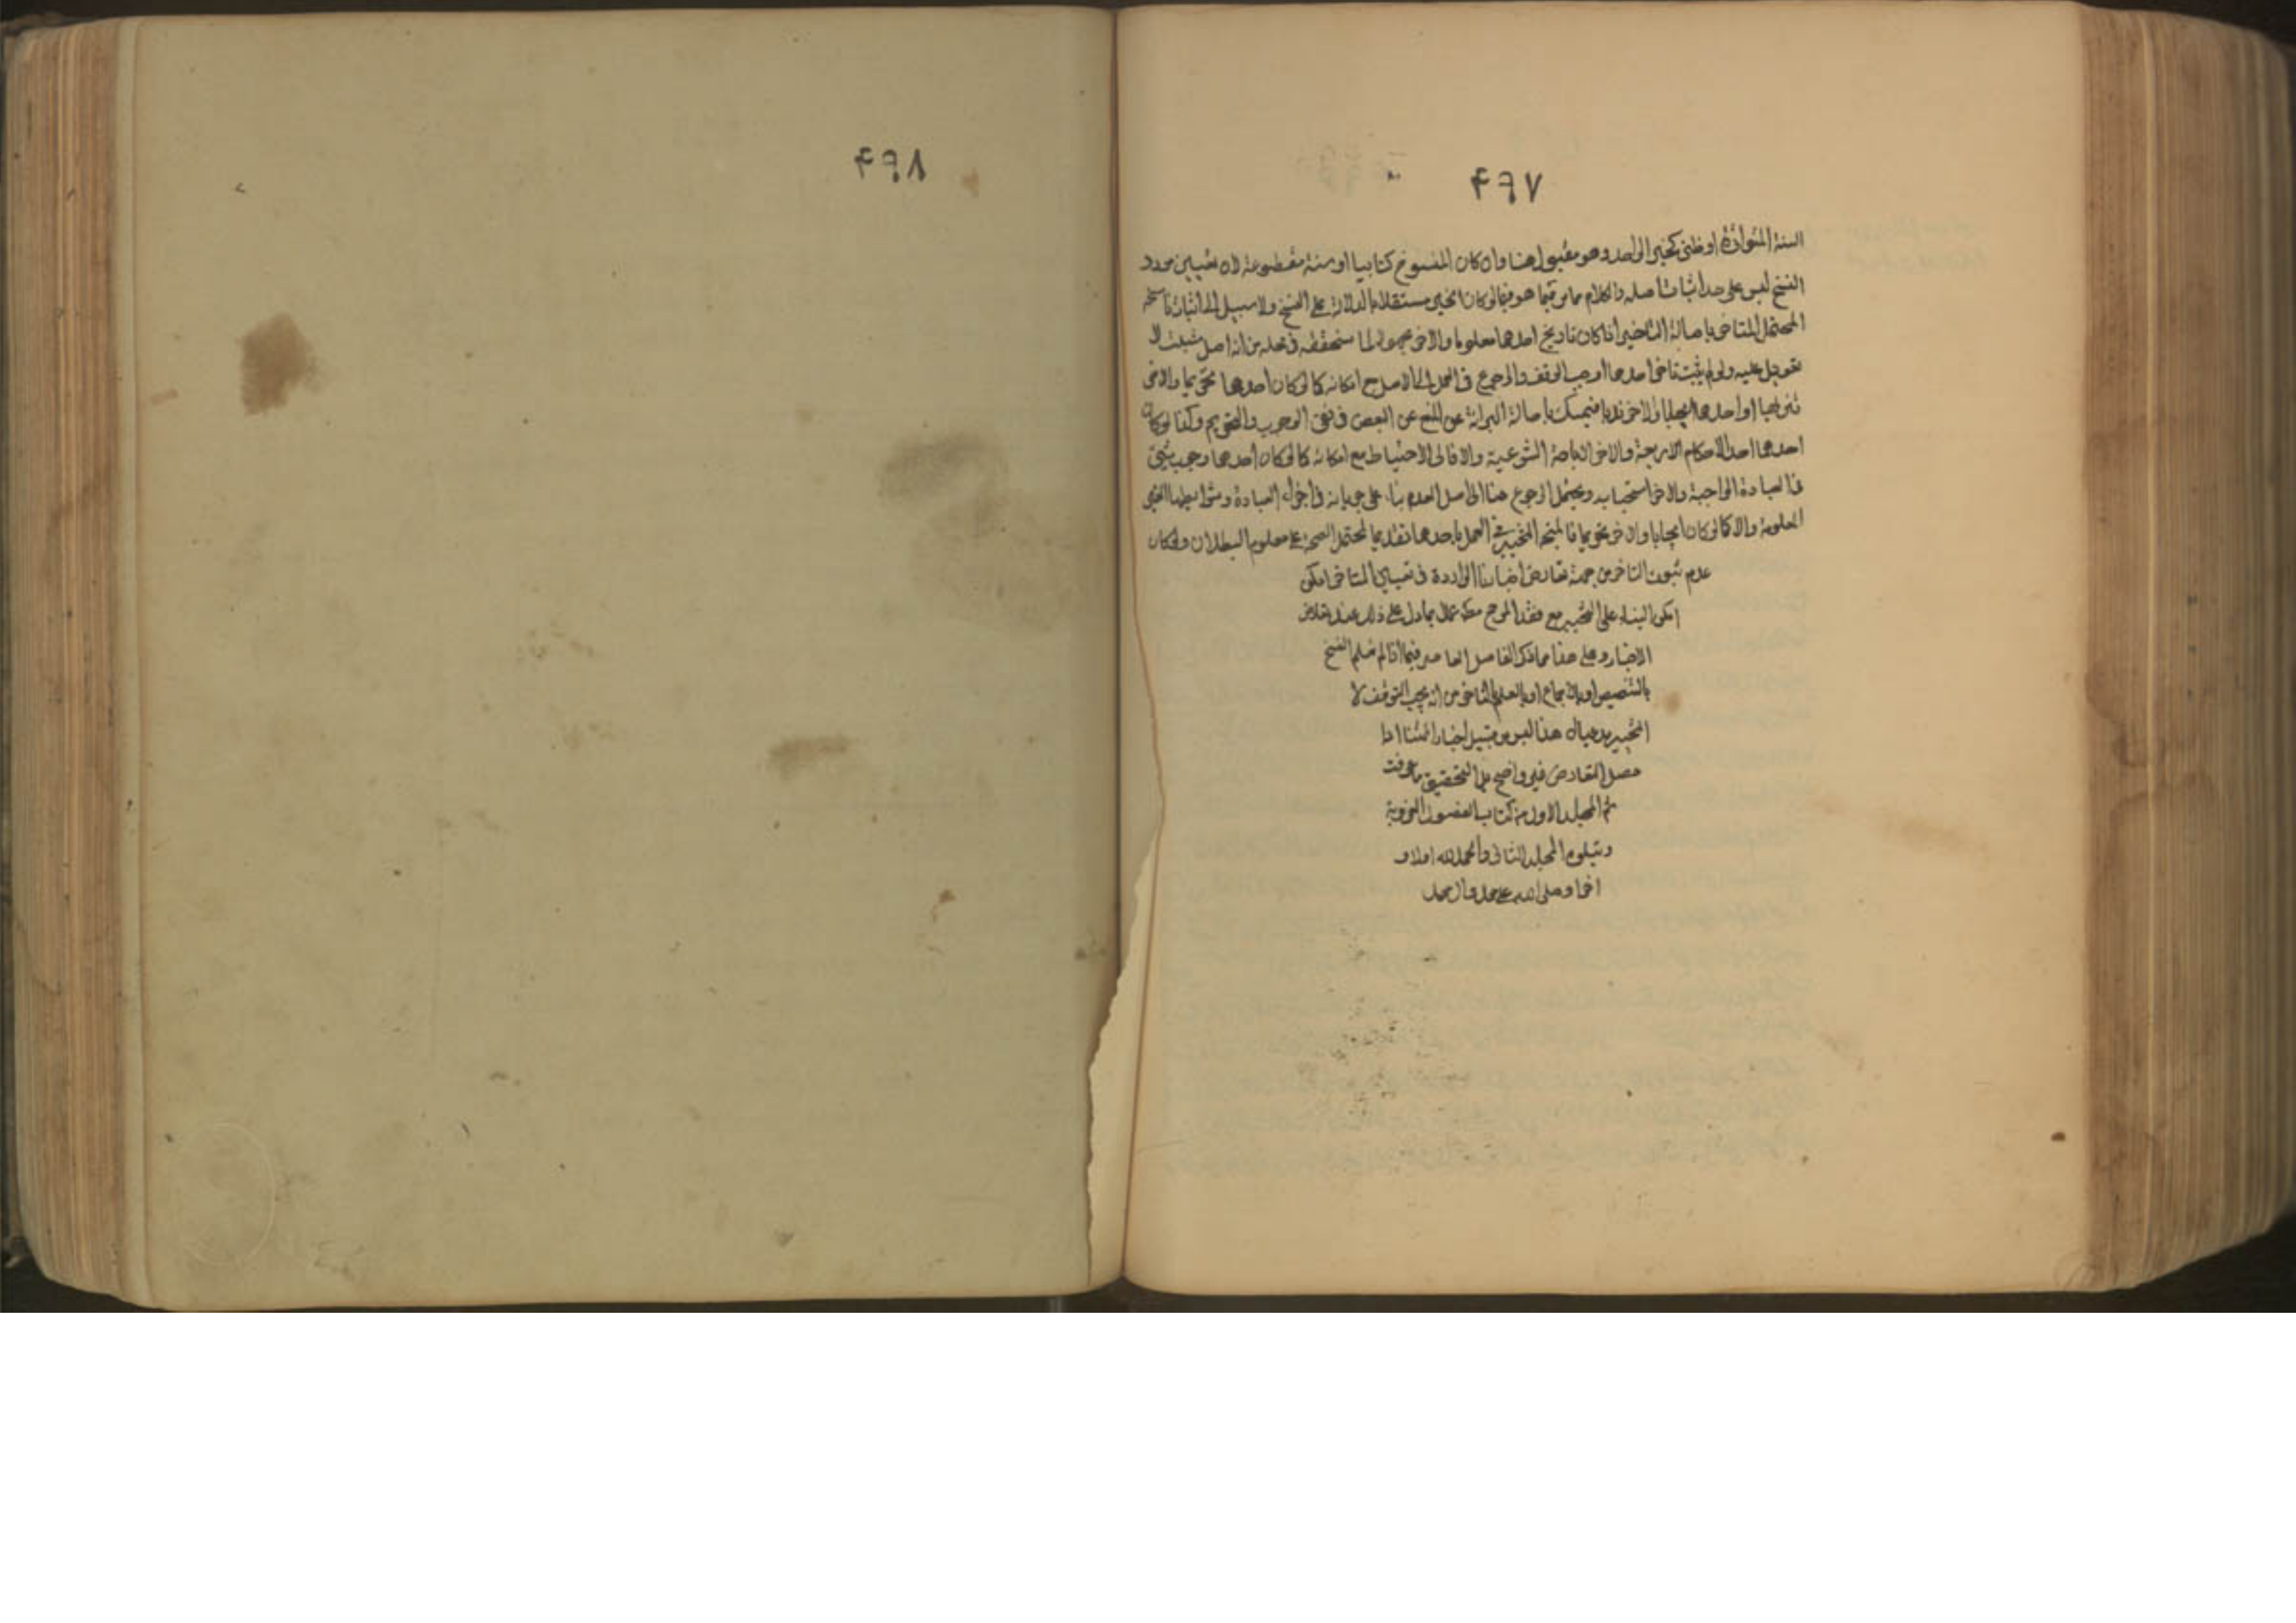 ۴۹۷
السنة المتواترة او ظنى كخبر الواحد وهو مقبول هنا وان كان المنسوخ كتابيا او سنة مقطوعة لان تعيين مورد
النسخ ليس على حد اثبات اصله والكلام هو فيما لو كان الخبر مستقلا بالدلالة على النسخ ولا سبيل الى اثبات
المحتمل المتاخر باصالة التاخير اذا كان تاريخ احدهما معلوما والاخر مجهولا لما سنحققه فى محله من انه اصل مثبت لا
تعويل عليه ولو لم يثبت تاخر احدهما وجب الوقف والرجوع فى العمل الى الاصل مع امكانه كما لو كان احدهما تحريما والاخر
تنزيها او احدهما ايجابا والاخر ندبا فيتمسك باصالة البرائة عن المنع عن النقيض فى نفى الوجوب والتحريم وكذا لو كان
احدهما احد الاحكام الاربعة والاخر الاباحة الشرعية والا فالى الاحتياط مع امكانه كما لو كان احدهما وجوب شئ
فى العبادة الواجبة والاخر استحبابه ويحتمل الرجوع هنا الى اصل العدم بناء على جريانه فى اجزاء العبادة وشرائطها الغير
المعلومة والا كما لو كان ايجابا والاخر تحريما فالمتجه التخيير فى العمل باحدهما تقديما لمحتمل الصحة على معلوم البطلان ولو كان
عدم ثبوت التاخر من جهة تعارض اخبارنا الواردة فى تعيين المتاخر امكن
امكن البناء على التخيير مع فقد المرجح عملا بما دل على ذلك عند تعارض
الاخبار وعلى هذا مما ذكر الفاضل المعاصر فيما اذا لم يعلم النسخ
بالتنصيص او بالاجماع او بالعلم بالتاخر من انه يجب التوقف لا
التخيير هذا ليس من قبيل اخبار ائمتنا اذا
حصل التعارض غير واضح بل التحقيق ما عرفت
تم المجلد الاول من كتاب الفصول الغروية
ويتلوه المجلد الثانى والحمد لله اولا و
اخرا وصلى الله على محمد وال محمد
۴۹۸